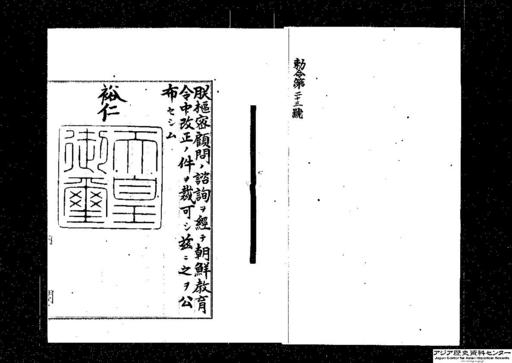 勅令第二十三號
朕樞密顧問ノ諮詢ヲ經テ朝鮮教育
令中改正ノ件ヲ裁可シ茲ニ之ヲ公
布セシム
裕仁
天皇
御璽
アジア歴史資料センター
Japan Center for Asian Historical Records